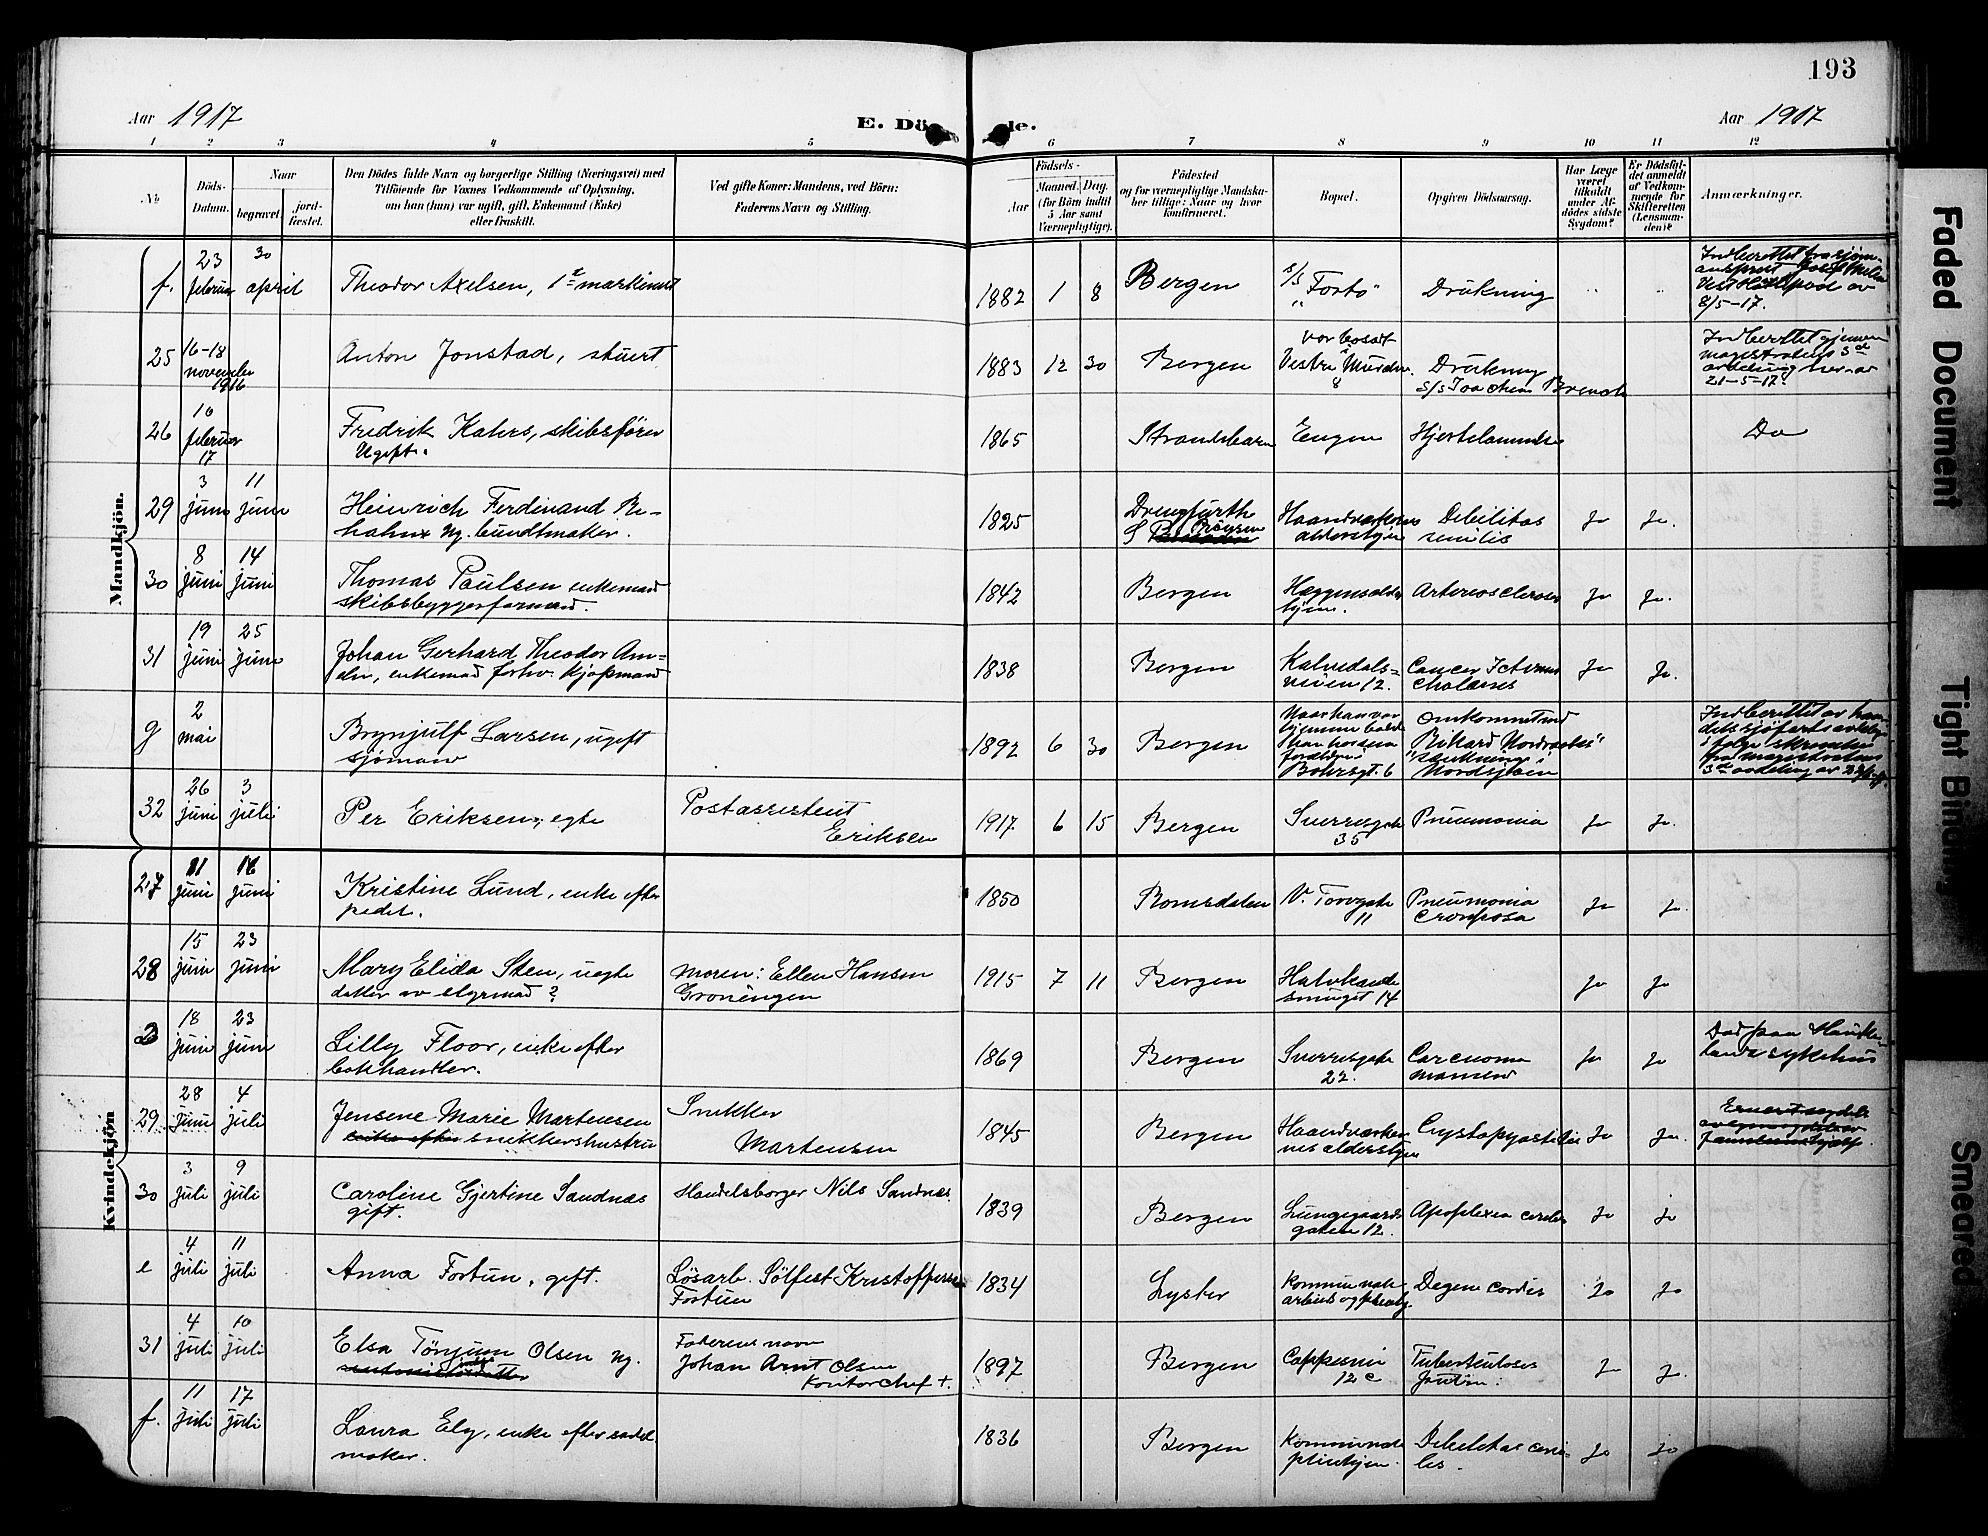 193
Aar 1917
E. Dö de.
Aar 1917
1 2 3 4 5 6 7 8 9 10 11 12
No
Döds-Datum.
Naar
begravet
jord-fæstet.
Den Dödes fulde Navn og borgerlige Stilling (Næringsvei) med
Tilföiende for Voxnes Vedkommende af Oplysning,
om han (hun) var ugift, gift, Enkemand (Enke)
eller fraskilt.
Ved gifte Koner: Mandens, ved Börn:
Faderens Navn og Stilling.
Födsels-
Aar
Maaned. Dag.
(for Börn indtil
5 Aar samt
Værnepligtige).
Födested
og for værnepligtige Mandska-
ber tillige: Naar og hvor
konfirmeret.
Bopæl.
Opgiven Dödsaarsag.
Har Læge
været
tilkaldt
under Af-
dödes sidste
Sygdom?
Er Dödsfal-
det anmeldt
af Vedkom-
mende for
Skifteretten
(Lensman-
den)?
Anmærkninger.
Mandkjön.
f. 23 februar 30 april Theodor Axelsen, 1ste maskinist 1882 1 8 Bergen s/s "Forto" Drukning
8/5-17.
25 16-18 november 1916 Anton Jonstad, stuert 1883 12 30 Bergen var bosat Vestre Murden 8 Drukning s/s Joachim Brench
21-5-17.
26 10 februar 17 Fredrik Katers, skibsfører
Ugift. 1865 Strandebarm Engen Hjertelammelse Do
29 3 juni 11 juni Heinrich Ferdinand Re-
hahn ug. bundtmaker. 1825 Drengfurth Haandværkernes aldershjem Debilitas senilis Ja Ja.
30 8 juni 14 juni Thomas Paulsen enkemand
skibsbyggerformand. 1842 Bergen Arteriosclerose Ja Ja.
31 19 juni 25 juni Johan Gerhard Theodor Am-
eln, enkemand forhv. kjøpmand 1838 Bergen Kalvedals-
veien 12. Cancer Icterus Ja Ja.
g 2 mai Brynjulf Larsen, ugift
sjømand 1892 6 30 Bergen
Nordsjøen
32 26 juni 3 juli Per Eriksen, egte Postassistent
Eriksen 1917 6 15 Bergen Sverresgate
35 Pneumonia Ja Ja.
Kvindekjön
27 11 juni 16 juni Kristine Lund, enke efter 1850 Romsdalen V. Torvgate
11 Pneumonia
crouposa Ja Ja.
28 15 juni 23 juni Mary Elida Sten, uegte
datter av styrmand? Moren: Ellen Hansen
Groningen 1915 7 11 Bergen Halvkande
smuget 14 Ja Ja
d 18 juni 23 juni Lilly Floor, enke efter
bokhandler. 1869 Bergen Sverresgate
22. Carcinoma Ja Ja Død paa Hauke-
lands sykehus
29 28 juni 4 juli Jensene Marie Martensen
enke efter snikkershustru Snikker
Martensen 1845 Bergen Haandværker
nes aldershjem Ja Ja.
30 3 juli 9 juli Caroline Gjertine Sandnæs
gift. Handelsborger Nils Sandnæs. 1839 Bergen Lungegaards
gaten 12. Apoplexia cerebri Ja Ja
e 4 juli 11 juli Anna Fortun, gift. Løsarb. Sølfest Kristoffersen
Fortun 1834 Lyster Degene cordis Ja Ja
31 4 juli 10 juli Elsa Tønjum Olsen ug. Faderens navn
Johan Arnt Olsen
Kontorchef +. 1897 Bergen Cappesvei
12 c Tuberkulosis Ja Ja.
f. 11 juli 17 juli Laura Ely, enke efter sadel
maker. 1836 Bergen Kommunale
pleiehjem. Debilitas seni-
lis. Ja Ja
Faded Document
Tight Binding
Smeared